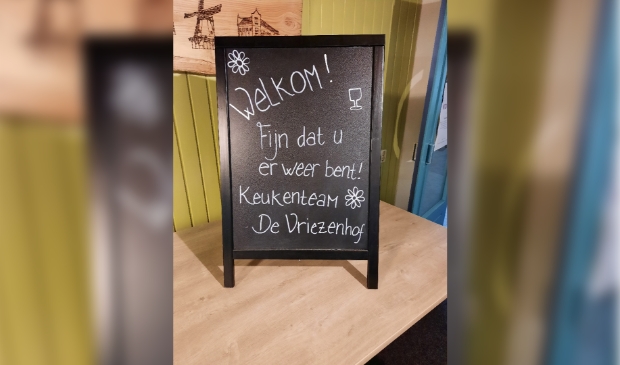 Welkom!
Fijn dat u
er weer bent!
Keukenteam
De Vriezenhof